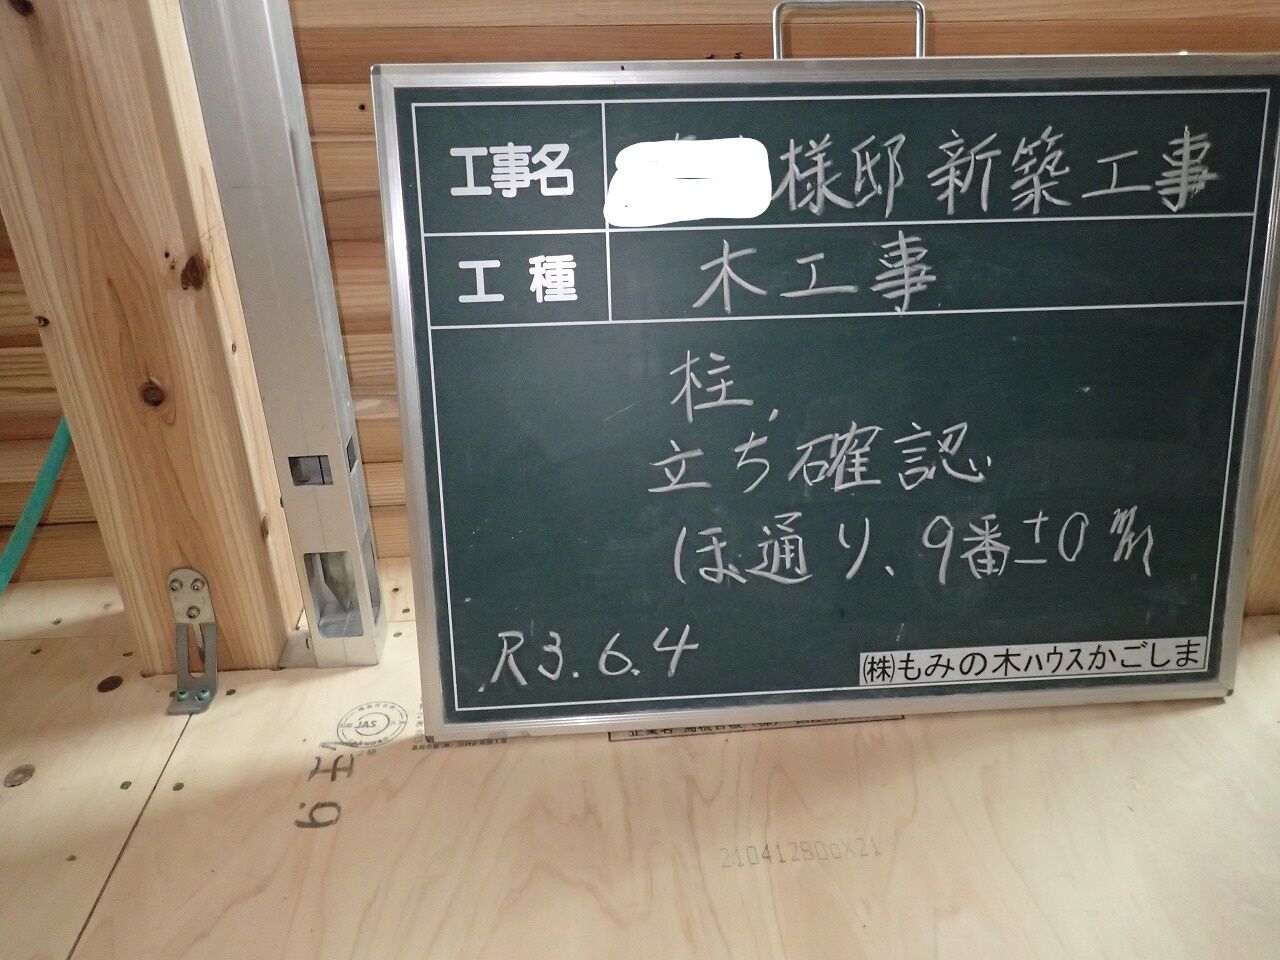 工事名 様邸新築工事
工種 木工事
柱,
立ち確認
ほ通り、9番±0㎜
R3.6.4
(株)もみの木ハウスかごしま
JAS
210412B00X21